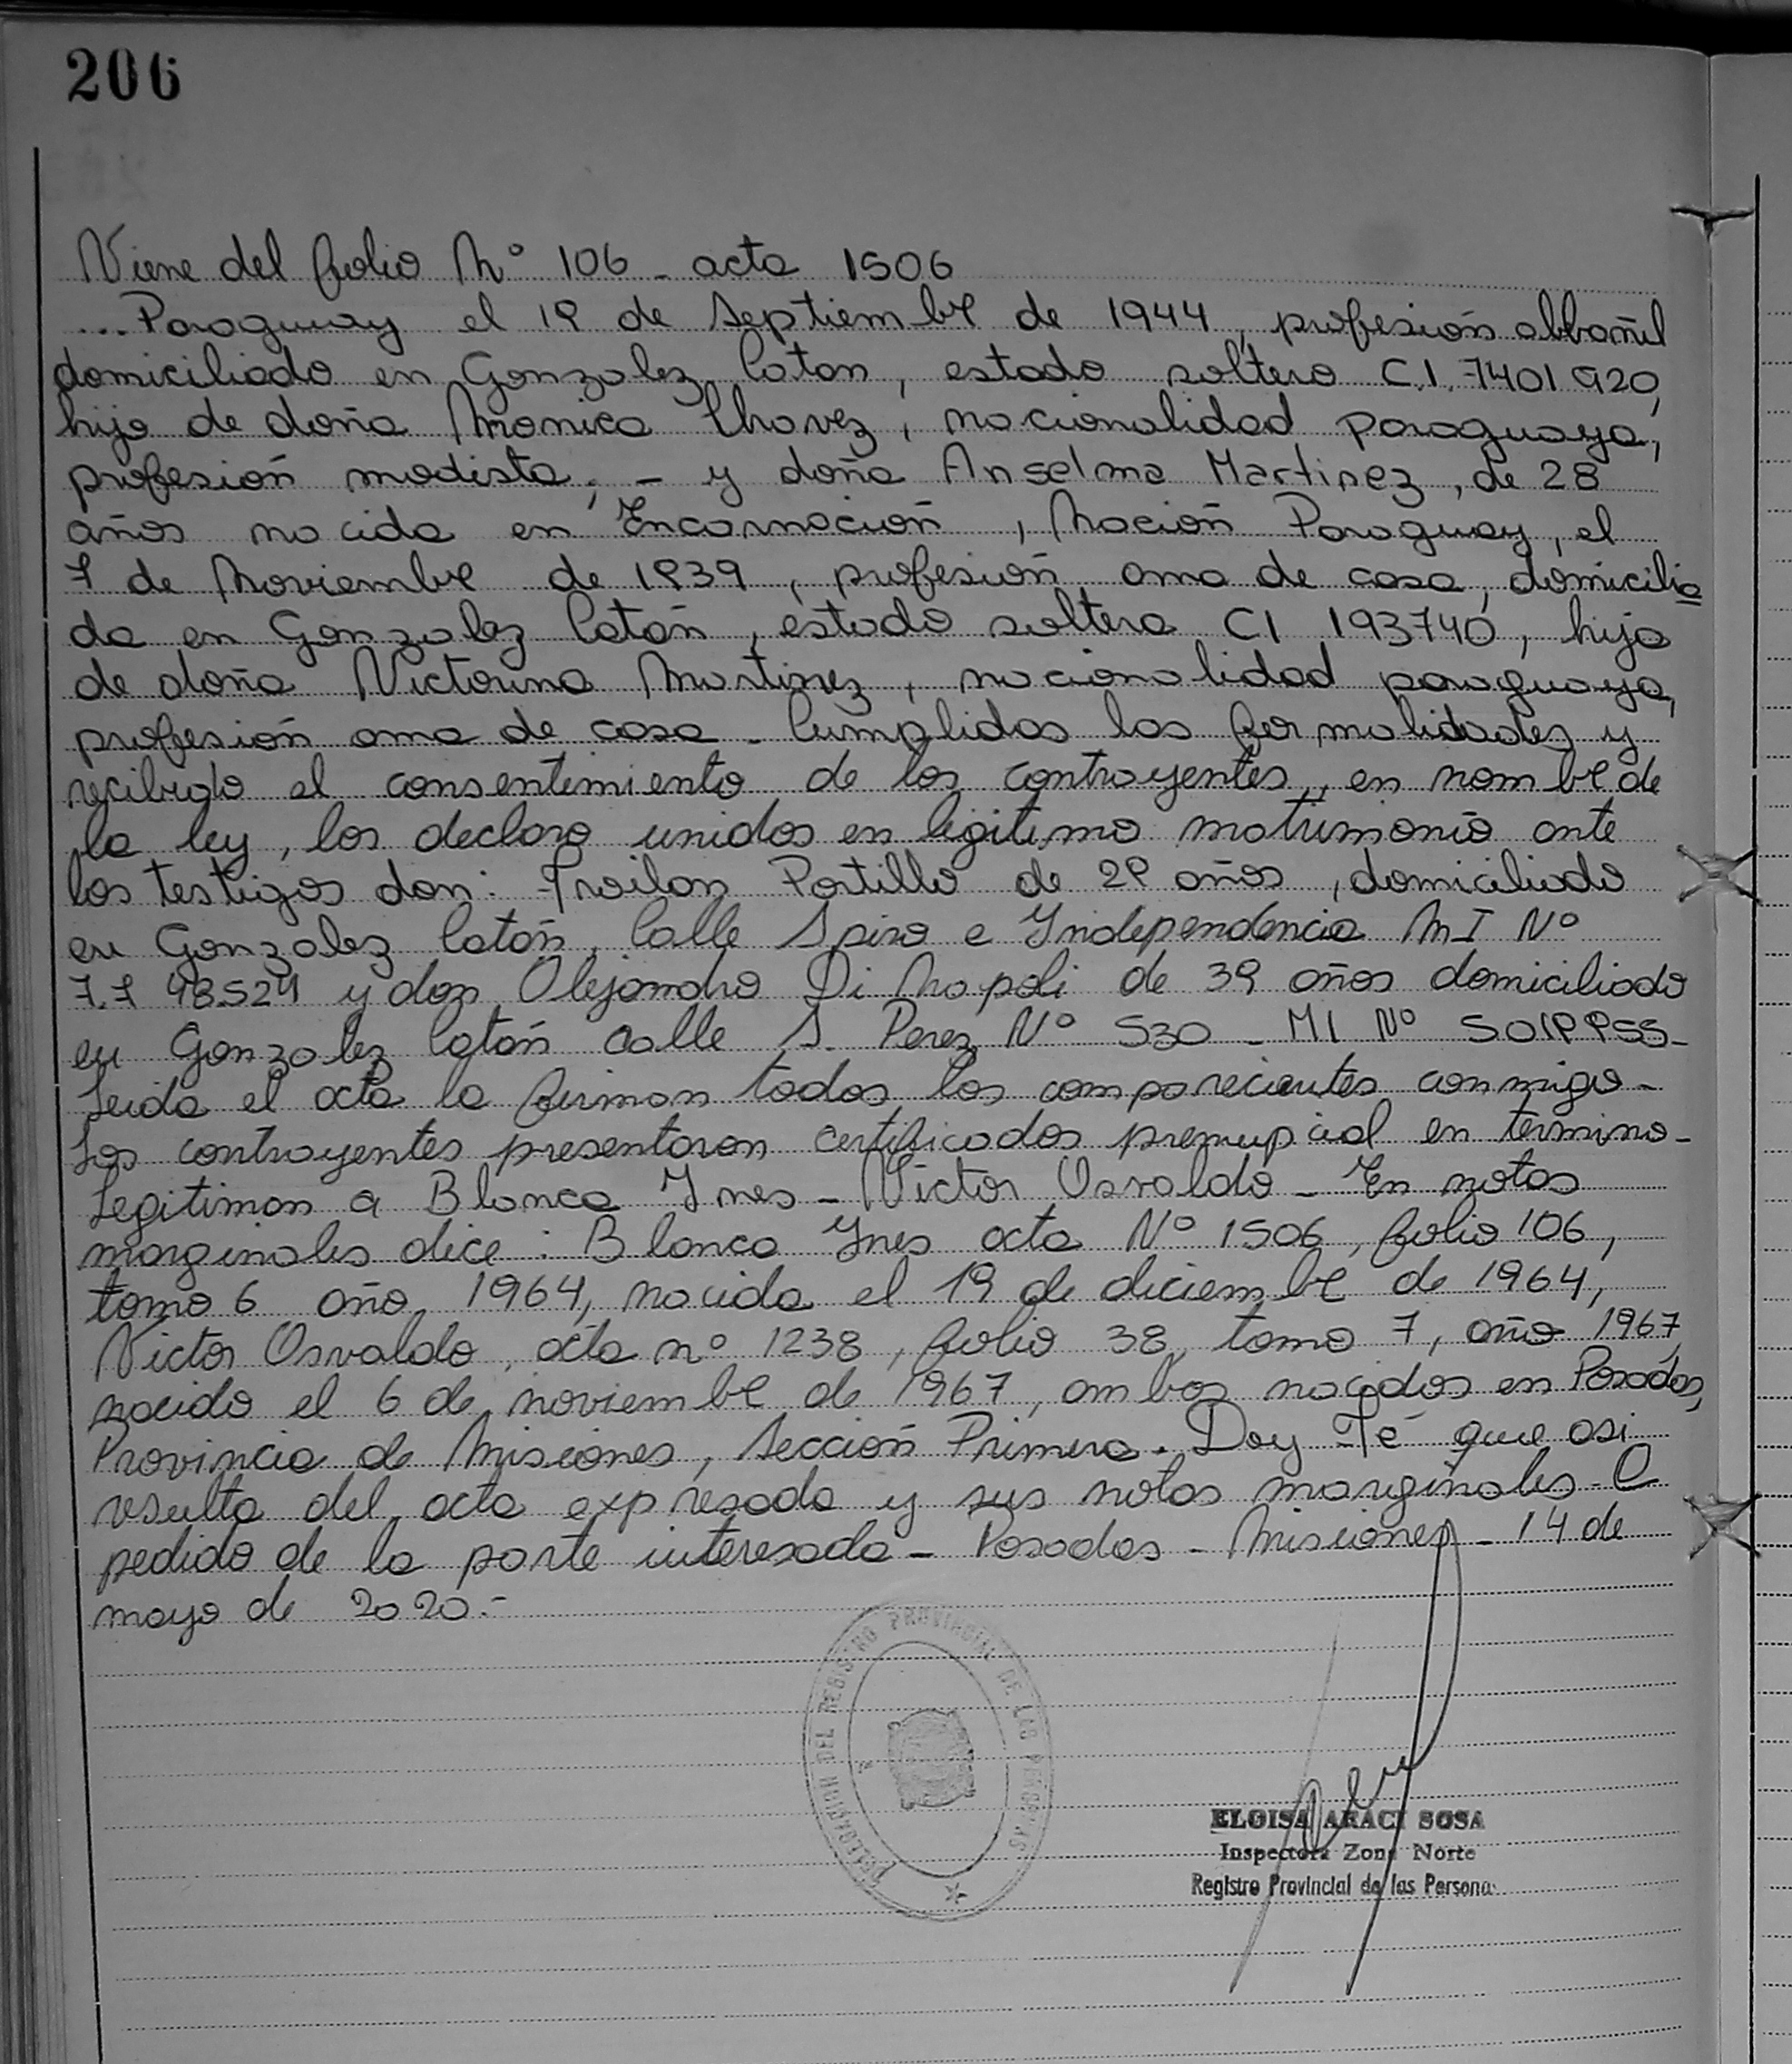 206
Viene del folio Nº 106 - acta 1506
... Paraguay el 19 de septiembre de 1944, profesión albañil
domiciliado en Gonzalez Catan, estado soltero C.I. 7401920,
hijo de doña Monica Chavez, nacionalidad paraguaya,
profesión modista, - y doña Anselma Martinez, de 28
años nacida en Encarnación, Nación Paraguay, el
7 de Noviembre de 1939, profesión ama de casa, domicilia
da en Gonzalez Catán, estado soltera CI 193740, hija
de doña Victorina Martinez, nacionalidad paraguaya,
profesión ama de casa - Cumplidas las formalidades y
recibido el consentimiento de los contrayentes, en nombre de
la ley, los declaro unidos en legitimo matrimonio ante
los testigos don: Froilan Portillo de 29 años, domiciliado
en Gonzalez Catán, Calle Spiro e Independencia MI Nº
7.748.524 y don Alejandro Di Napoli de 39 años domiciliado
en Gonzalez Catán calle S. Perez Nº 530 - MI Nº
Leida el acta la firman todos los comparecientes conmigo -
Los contrayentes presentaron certificados prenupcial en termino -
Legitiman a Blanca Ines - Victor Osvaldo - En notas
marginales dice : Blanca Ynes acta Nº 1506, folio 106,
tomo 6 año, 1964, nacida el 19 de diciembre de 1964,
Victor Osvaldo, acta nº 1238, folio 38, tomo 7, año 1967,
nacido el 6 de noviembre de 1967, ambos nacidos en Posadas,
Provincia de Misiones, Sección Primera. Doy Fé que asi
resulta del acta expresada y sus notas marginales - A
pedido de la parte interesada - Posadas - Misiones - 14 de
mayo de 2020.-
DEL REGISTRO PROVINCIAL DE LAS PERSONAS
ELOISA ARACI SOSA
Inspectora Zona Norte
Registro Provincial de las Persona